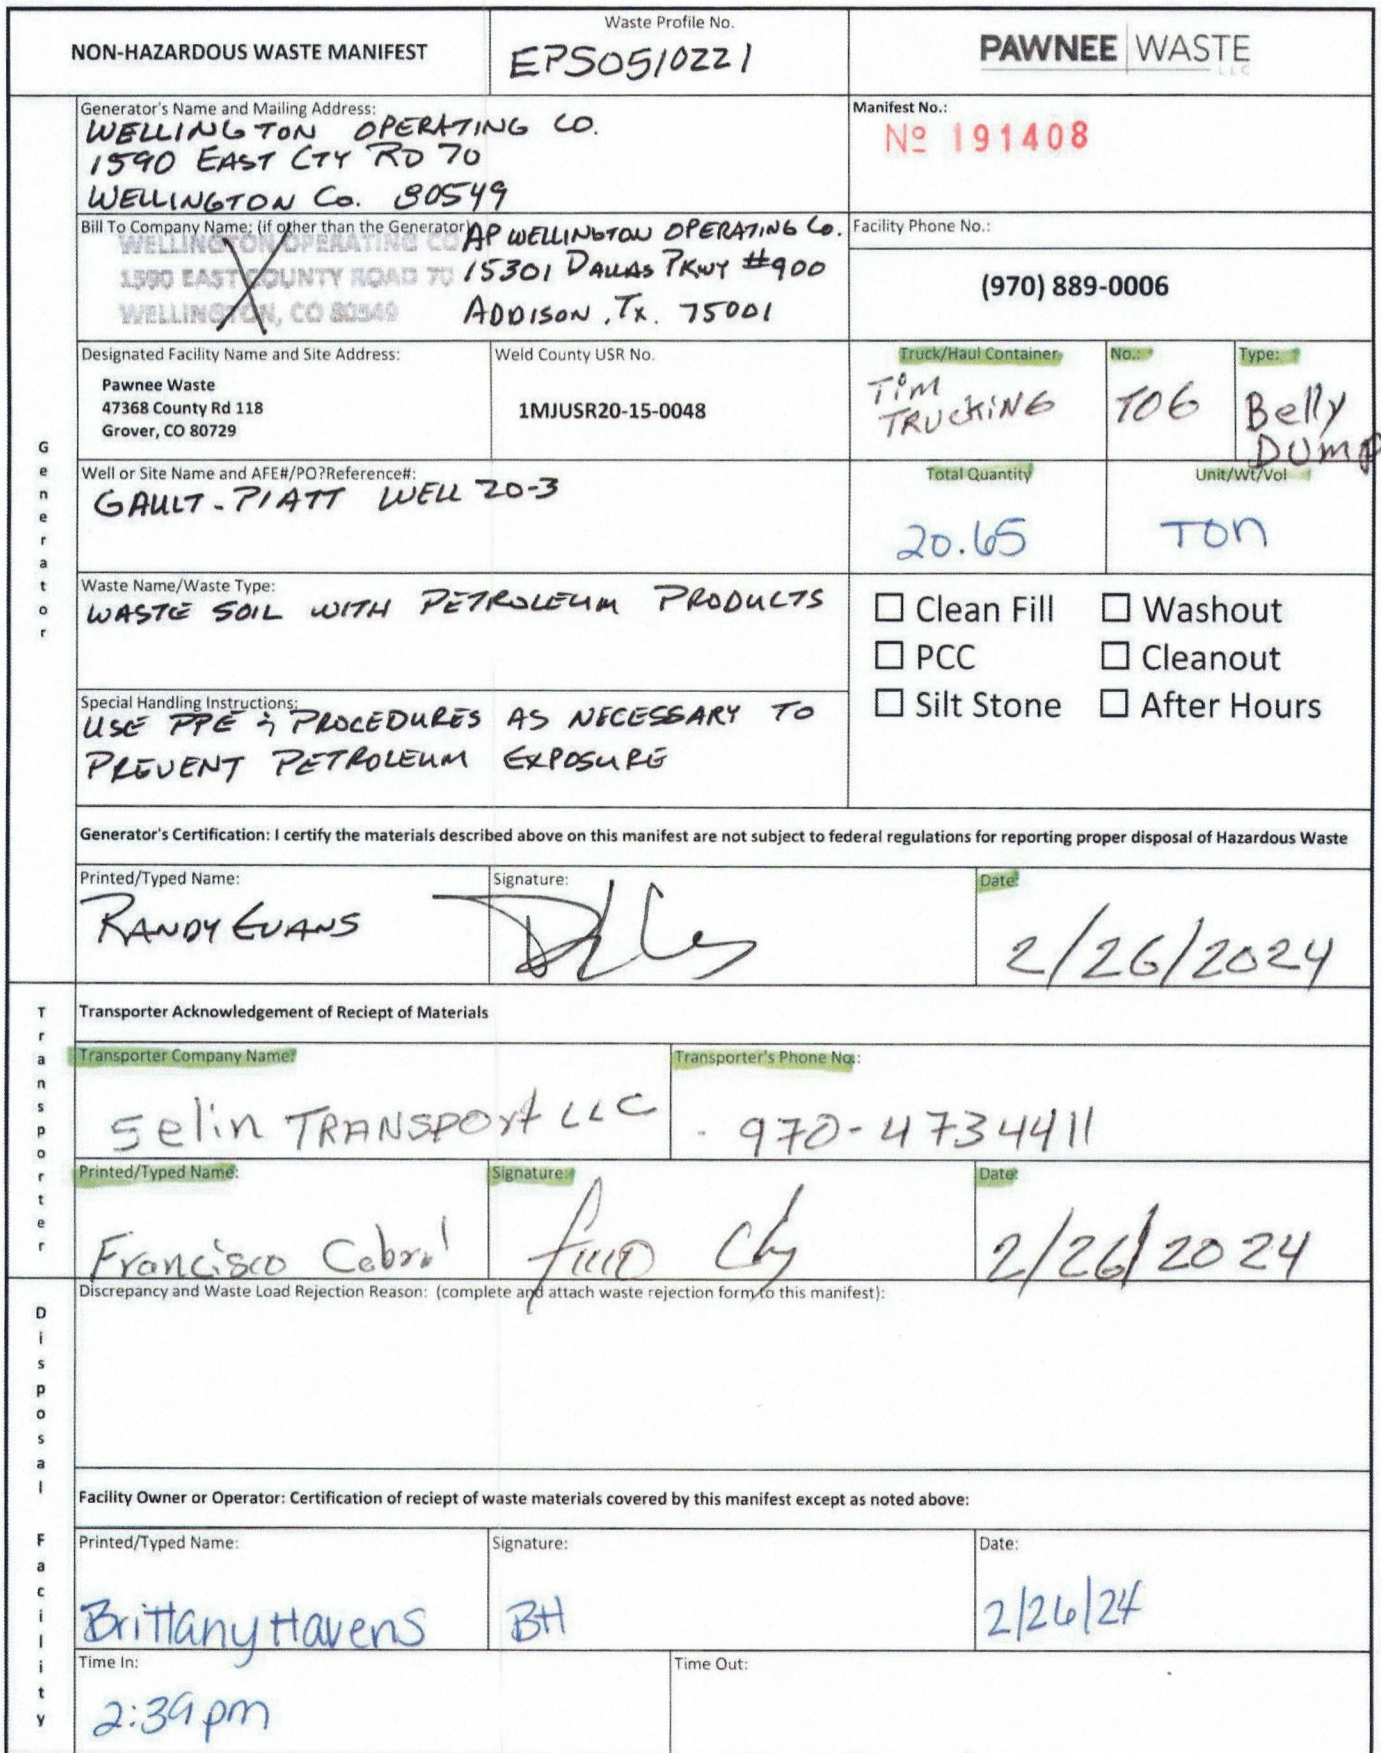 NON-HAZARDOUS WASTE MANIFEST
Waste Profile No.
EPS0510221
PAWNEE | WASTE
LLC
Generator's Name and Mailing Address:
WELLINGTON OPERATING CO.
1590 EAST CTY RD 70
WELLINGTON Co. 80549
Manifest No.:
Nº 191408
Bill To Company Name: (if other than the Generator)
WELLINGTON OPERATING CO
1590 EAST COUNTY ROAD 70
WELLINGTON, CO 80549
AP WELLINGTON OPERATING Co.
15301 DALLAS PKWY #900
ADDISON, Tx. 75001
Facility Phone No.:
(970) 889-0006
Designated Facility Name and Site Address:
Pawnee Waste
47368 County Rd 118
Grover, CO 80729
Weld County USR No.
1MJUSR20-15-0048
Truck/Haul Container
Tim
TRUCKING
No.:
T06
Type:
Belly
DUMP
Generator
Well or Site Name and AFE#/PO?Reference#:
GAULT-PIATT WELL 20-3
Total Quantity
20.65
Unit/Wt/Vol
TON
Waste Name/Waste Type:
WASTE SOIL WITH PETROLEUM PRODUCTS
☐ Clean Fill ☐ Washout
☐ PCC ☐ Cleanout
☐ Silt Stone ☐ After Hours
Special Handling Instructions:
USE PPE & PROCEDURES AS NECESSARY TO
PREVENT PETROLEUM EXPOSURE
Generator's Certification: I certify the materials described above on this manifest are not subject to federal regulations for reporting proper disposal of Hazardous Waste
Printed/Typed Name:
RANDY EVANS
Signature:
Date:
2/26/2024
Transporter
Transporter Acknowledgement of Reciept of Materials
Transporter Company Name:
Selin TRANSPOrt LLC
Transporter's Phone No.:
970-4734411
Printed/Typed Name:
Francisco Cabral
Signature:
Date:
2/26/2024
Disposal Facility
Discrepancy and Waste Load Rejection Reason: (complete and attach waste rejection form to this manifest):
Facility Owner or Operator: Certification of reciept of waste materials covered by this manifest except as noted above:
Printed/Typed Name:
Brittany Havens
Signature:
BH
Date:
2/26/24
Time In:
2:39pm
Time Out: